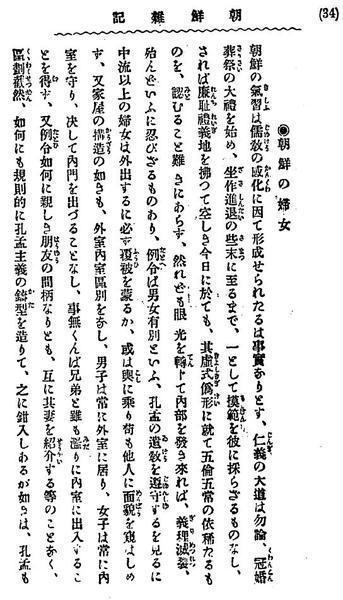 (34)
朝鮮雜記
◉朝鮮の婦女
朝鮮の氣習は儒敎の感化に因て形成せられたるは事實なりとす、仁義の大道は勿論、冠婚
葬祭の大禮を始め、坐作進退の些末に至るまで、一として摸範を彼に採らざるものなし、
されば廉耻禮義地を拂つて空しき今日に於ても、其虛式僞形に就て五倫五常の依稀たるも
のを、認むること難きにあらず、然れども眼光を轉じて內部を發き來れば、義理滅裂、
殆んどいふに忍びざるものあり、例令ば男女有別といふ、孔孟の遺敎を遵守するを見るに
中流以上の婦女は外出するに必ず覆被を蒙るか、或は輿に乘り苟も他人に面貌を窺はしめ
ず、又家屋の構造の如きも、外室內室區別をなし、男子は常に外室に居り、女子は常に內
室を守り、決して內門を出づることなし、事無くんば兄弟と雖も濫りに內室に出入するこ
とを得ず、又例令如何に親しき朋友の間柄なりとも、互に其妻を紹介する等のことなく、
區劃截然、如何にも規則的に孔孟主義の鑄型を造りて、之に鉗入しあるが如きは、孔孟も